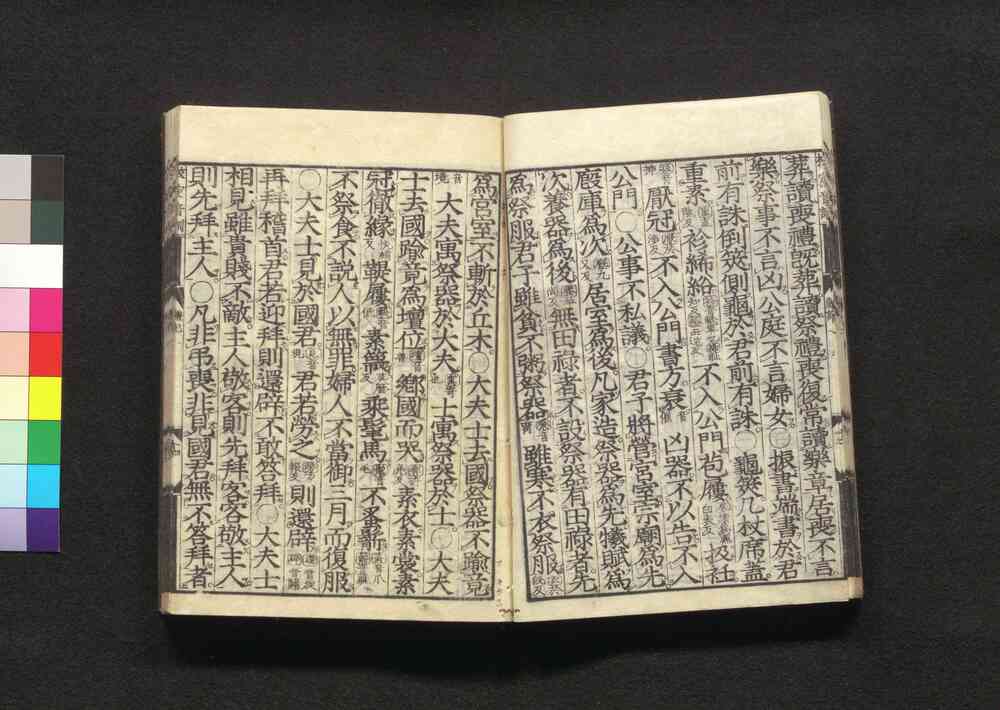 葬讀喪禮旣葬讀祭禮喪復常讀樂章居喪不言
樂祭事不言凶公庭不言婦女○振書端書於君
前有誅倒筴側龜於君前有誅○龜筴几杖席蓋
重素袗絺綌不入公門苞屨扱衽
厭冠不入公門書方衰凶器不以告不入
公門○公事不私議○君子將營宮室宗廟爲先
廐庫爲次居室爲後凡家造祭器爲先犧賦爲
次養器爲後無田祿者不設祭器有田祿者先
爲祭服君子雖貧不粥祭器雖寒不衣祭服
爲宮室不斬於丘木○大夫士去國祭器不踰竟
音境大夫寓祭器於大夫士寓祭器於士○大夫
士去國踰竟爲壇位鄉國而哭素衣素裳素
冠徹緣鞮屨素簚乘髦馬不蚤鬋
不祭食不說人以無罪婦人不當御三月而復服
○大夫士見於國君君若勞之則還辟
再拜稽首君若迎拜則還辟不敢答拜○大夫士
相見雖貴賤不敵主人敬客則先拜客客敬主人
則先拜主人○凡非弔喪非見國君無不答拜者